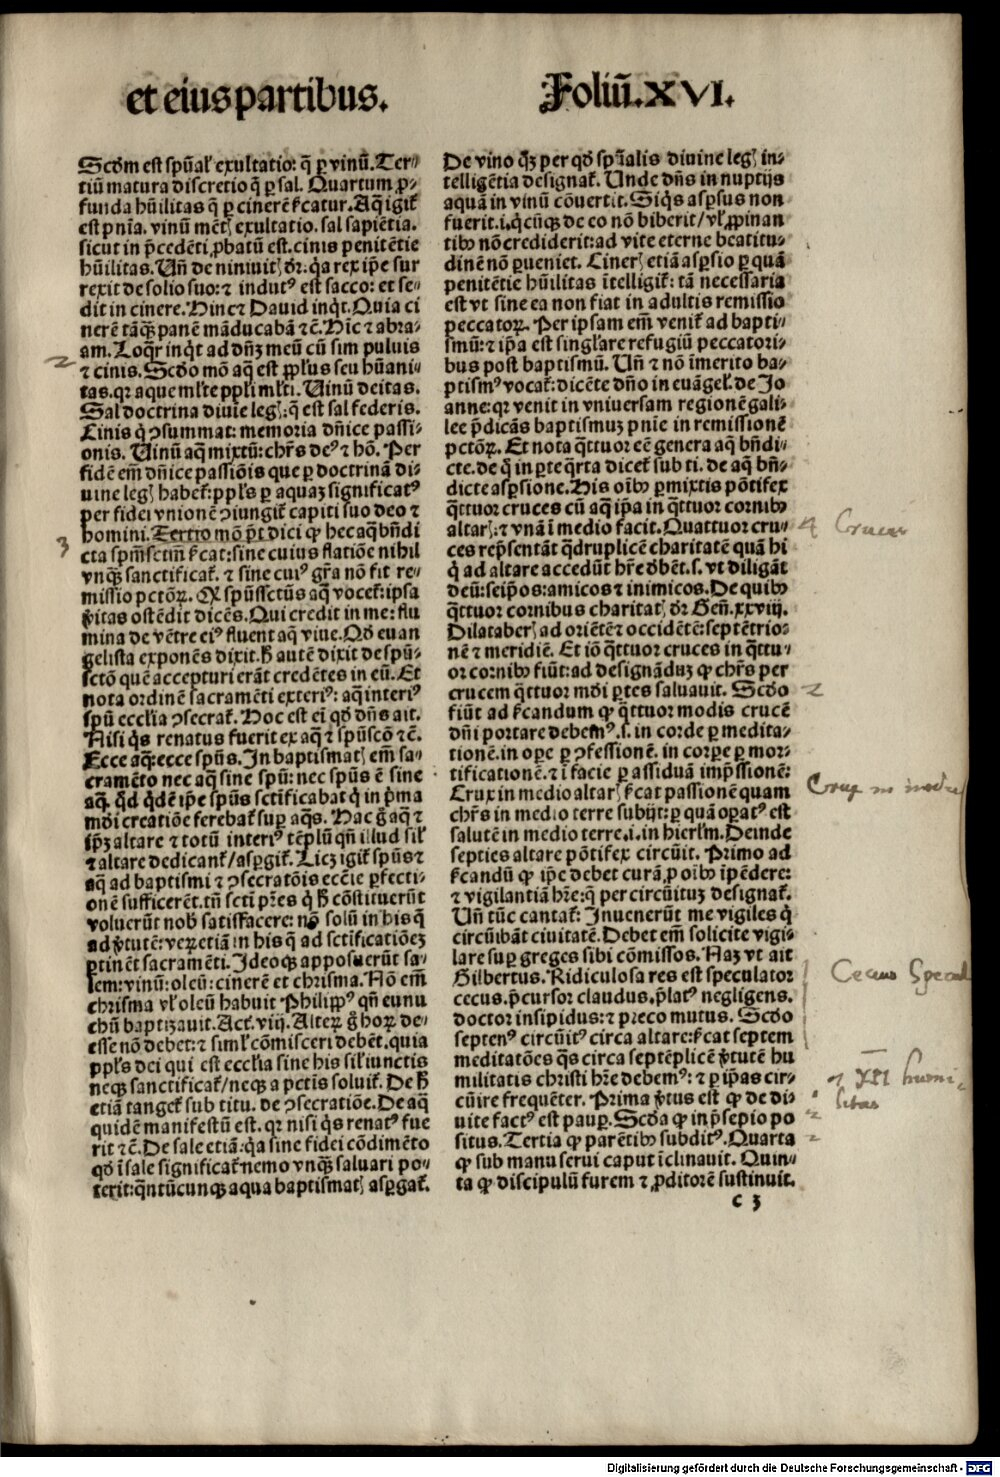 et eius partibus.
Foliū.XVI.
Scd̄m est spūal' exultatio: q̄ ꝑ vinū. Ter⸗
tiū matura discretio q̄ ꝑ sal. Quartum ꝓ⸗
funda hūilitas q̄ ꝑ cinerē ẜcatur. Aq̄ igit̄
est pn̄ia. vinū mētꝭ exultatio. sal sapiētia.
sicut in p̄cedēti ꝓbatū est. cinis penitētie
hūilitas. Vn̄ de niniuitꝭ dr̄. q̄a rex ip̄e sur
rexit de solio suo: ⁊ indutꝰ est sacco: et se⸗
dit in cinere. Hinc ⁊ Dauid inq̇t. Quia ci
nerē tāq̄ꝫ panē māducabā ⁊c̄. Hic ⁊ abra⸗
am. Loq̄r inq̇t ad dn̄ꝫ meū cū sim puluis
⁊ cinis. Scd̄o mō aq̄ est ppl̄us seu hūani⸗
tas. qꝛ aque ml̄te ppl̄i ml̄ti. Vinū deitas.
Sal doctrina diuīe legꝭ: q̄ est sal federis.
Cinis q̇ ꝯsummat: memoria dn̄ice passi⸗
onis. Vinū aq̄ mixtū: chr̄s deꝰ ⁊ hō. Per
fidē em̄ dn̄ice passiōis que ꝑ doctrinā di⸗
uine legꝭ habet̄: ppl̄s ꝑ aquaꝫ significatꝰ
per fidei vnionē ꝯiungit̄ capiti suo deo ⁊
homini. Tertio mō p̄t dici ꝙ hec aq̄ bn̄di
cta spm̄sctm̄ ẜcat: sine cuius flatiōe nihil
vnq̄ꝫ sanctificat̄. ⁊ sine cuiꝰ gr̄a nō fit re⸗
missio pctōꝝ. Ꝙ spūssctūs aq̄ vocet̄: ipsa
v̄itas ostēdit dicēs. Qui credit in me: flu
mina de vētre eiꝰ fluent aq̄ viue. Qd̄ euan
gelista exponēs dixit. H̄ autē dixit de spū⸗
sctō quē accepturi erāt credētes in eū. Et
nota ordinē sacramēti exteriꝰ: aq̄ interiꝰ
spū eccl̄ia ꝯsecrat̄. Hoc est em̄ qd̄ dn̄s ait.
Nisi q̇s renatus fuerit ex aq̄ ⁊ spūscō ⁊c̄.
Ecce aq̄: ecce spūs. In baptismatꝭ em̄ sa⸗
cramēto nec aq̄ sine spū: nec spūs ē sine
aq̄. q̇d q̇dē ip̄e spūs sctificabat q̇ in p̄ma
mūdi creatiōe ferebat̄ suꝑ aq̄s. Hac ḡ aq̄ ⁊
ip̄ꝫ altare ⁊ totū interiꝰ tēplū qn̄ illud sil'
⁊ altare dedicant̄/aspgit̄. Licꝫ igit̄ spūs ⁊
aq̄ ad baptismi ⁊ ꝯsecratōis ecc̄ie ꝑfecti⸗
onē sufficerēt. tn̄ sctī pr̄es q̇ H̄ cōstituerūt
voluerūt nob̄ satisfacere: nō solū in his q̄
ad v̄tutē: veꝝ etiā in his q̄ ad sctificatiōeꝫ
ꝑtinēt sacramēti. Ideoqꝫ apposuerūt sa⸗
lem: vinū: oleū: cinerē et chrisma. Nō em̄
chrisma vl' oleū habuit Philippꝰ qn̄ eunu
chū baptizauit. Act̄. viij. Alteꝝ ḡ hoꝝ de⸗
esse nō debet: ⁊ simł cōmisceri debēt. quia
ppl̄s dei qui est eccl̄ia sine his sil' iunctis
neqꝫ sanctificat̄/neqꝫ a pctis soluit̄. De H̄
etiā tanget̄ sub titu. de ꝯsecratiōe. De aq̄
quidē manifestū est. qꝛ nisi q̇s renatꝰ fue
rit ⁊c̄. De sale etiā: q̄a sine fidei cōdimēto
qd̄ ī sale significat̄ nemo vnq̄ꝫ saluari po⸗
terit: q̄ntūcunqꝫ aqua baptismatꝭ aspgat̄.
De vino q̄ꝫ per qd̄ sp̄ialis diuine legꝭ in⸗
telligētia designat̄. Vnde dn̄s in nuptijs
aquā in vinū cōuertit. Siq̇s aspsus non
fuerit. i. q̇cūqꝫ de eo nō biberit/vl' ꝓpinan
tibꝰ nō crediderit: ad vite eterne beatitu⸗
dinē nō ꝑueniet. Cinerꝭ etiā aspsio ꝑ quā
penitētie hūilitas ītelligit̄: tā necessaria
est vt sine ea non fiat in adultis remissio
peccatoꝝ. Per ipsam em̄ venit̄ ad bapti⸗
smū: ⁊ ip̄a est singl'are refugiū peccatori⸗
bus post baptismū. Vn̄ ⁊ nō īmerito ba⸗
ptismꝰ vocat̄: dicēte dn̄o in euāgel̄. de Jo
anne: qꝛ venit in vniuersam regionē gali⸗
lee p̄dicās baptismuꝫ pnīe in remissionē
pctōꝝ. Et nota q̄ttuor eē genera aq̄ bn̄di⸗
cte. de q̇ in ꝑte q̄rta dicet̄ sub ti. de aq̄ bn̄⸗
dicte aspsione. His oībꝰ ꝑmixtis pōtifex
q̄ttuor cruces cū aq̄ ip̄a in q̄ttuor cornibꝰ
altarꝭ: ⁊ vnā ī medio facit. Quattuor cru⸗
ces rep̄sentāt q̄druplicē charitatē quā hi
q̇ ad altare accedūt hr̄e d̄bēt. s. vt diligāt
deū: seip̄os: amicos ⁊ inimicos. De quibꝰ
q̄ttuor cornibus charitatꝭ dr̄ Gen̄. xxviij.
Dilataberꝭ ad oriētē ⁊ occidētē: septētrio⸗
nē ⁊ meridiē. Et iō q̄ttuor cruces in q̄ttu⸗
or cornibꝰ fiūt: ad designāduꝫ ꝙ chr̄s per
crucem q̄ttuor mūdi ꝑtes saluauit. Scd̄o
fiūt ad ẜcandum ꝙ q̄ttuor modis crucē
dn̄i portare debemꝰ. s. in corde ꝑ medita⸗
tionē. in oꝑe ꝑ ꝯfessionē. in corꝑe ꝑ mor⸗
tificationē. ⁊ ī facie ꝑ assiduā imp̄ssionē:
Crux in medio altarꝭ ẜcat passionē quam
chr̄s in medio terre subijt: ꝑ quā opatꝰ est
salutē in medio terre. i. in hierl̄m. Deinde
septies altare pōtifex circūit. Primo ad
ẜcandū ꝙ ip̄e debet curā ꝓ oībꝰ īpēdere:
⁊ vigilantiā hr̄e: q̄ per circūituꝫ designat̄.
Vn̄ tūc cantat̄: Inuenerūt me vigiles q̇
circūibāt ciuitatē. Debet em̄ solicite vigi⸗
lare suꝑ greges sibi cōmissos. Naꝫ vt ait
Gilbertus. Ridiculosa res est speculator
cecus. p̄cursor claudus. p̄latꝰ negligens.
doctor insipidus: ⁊ preco mutus. Scd̄o
septenꝰ circūitꝰ circa altare: ẜcat septem
meditatōes q̄s circa septēplicē v̄tutē hu
militatis christi hr̄e debemꝰ: ⁊ ꝑ ip̄as cir⸗
cūire frequēter. Prima v̄tus est ꝙ de di⸗
uite factꝰ est pauꝑ. Scd̄a ꝙ in p̄sepio po
situs. Tertia ꝙ parētibꝰ subditꝰ. Quarta
ꝙ sub manu serui caput īclinauit. Quin⸗
ta ꝙ discipulū furem ⁊ ꝓditorē sustinuit.
c 3
2
3
4 Cruces
2
Crux in medio
Cecus Specul
Digitalisierung gefördert durch die Deutsche Forschungsgemeinschaft - DFG